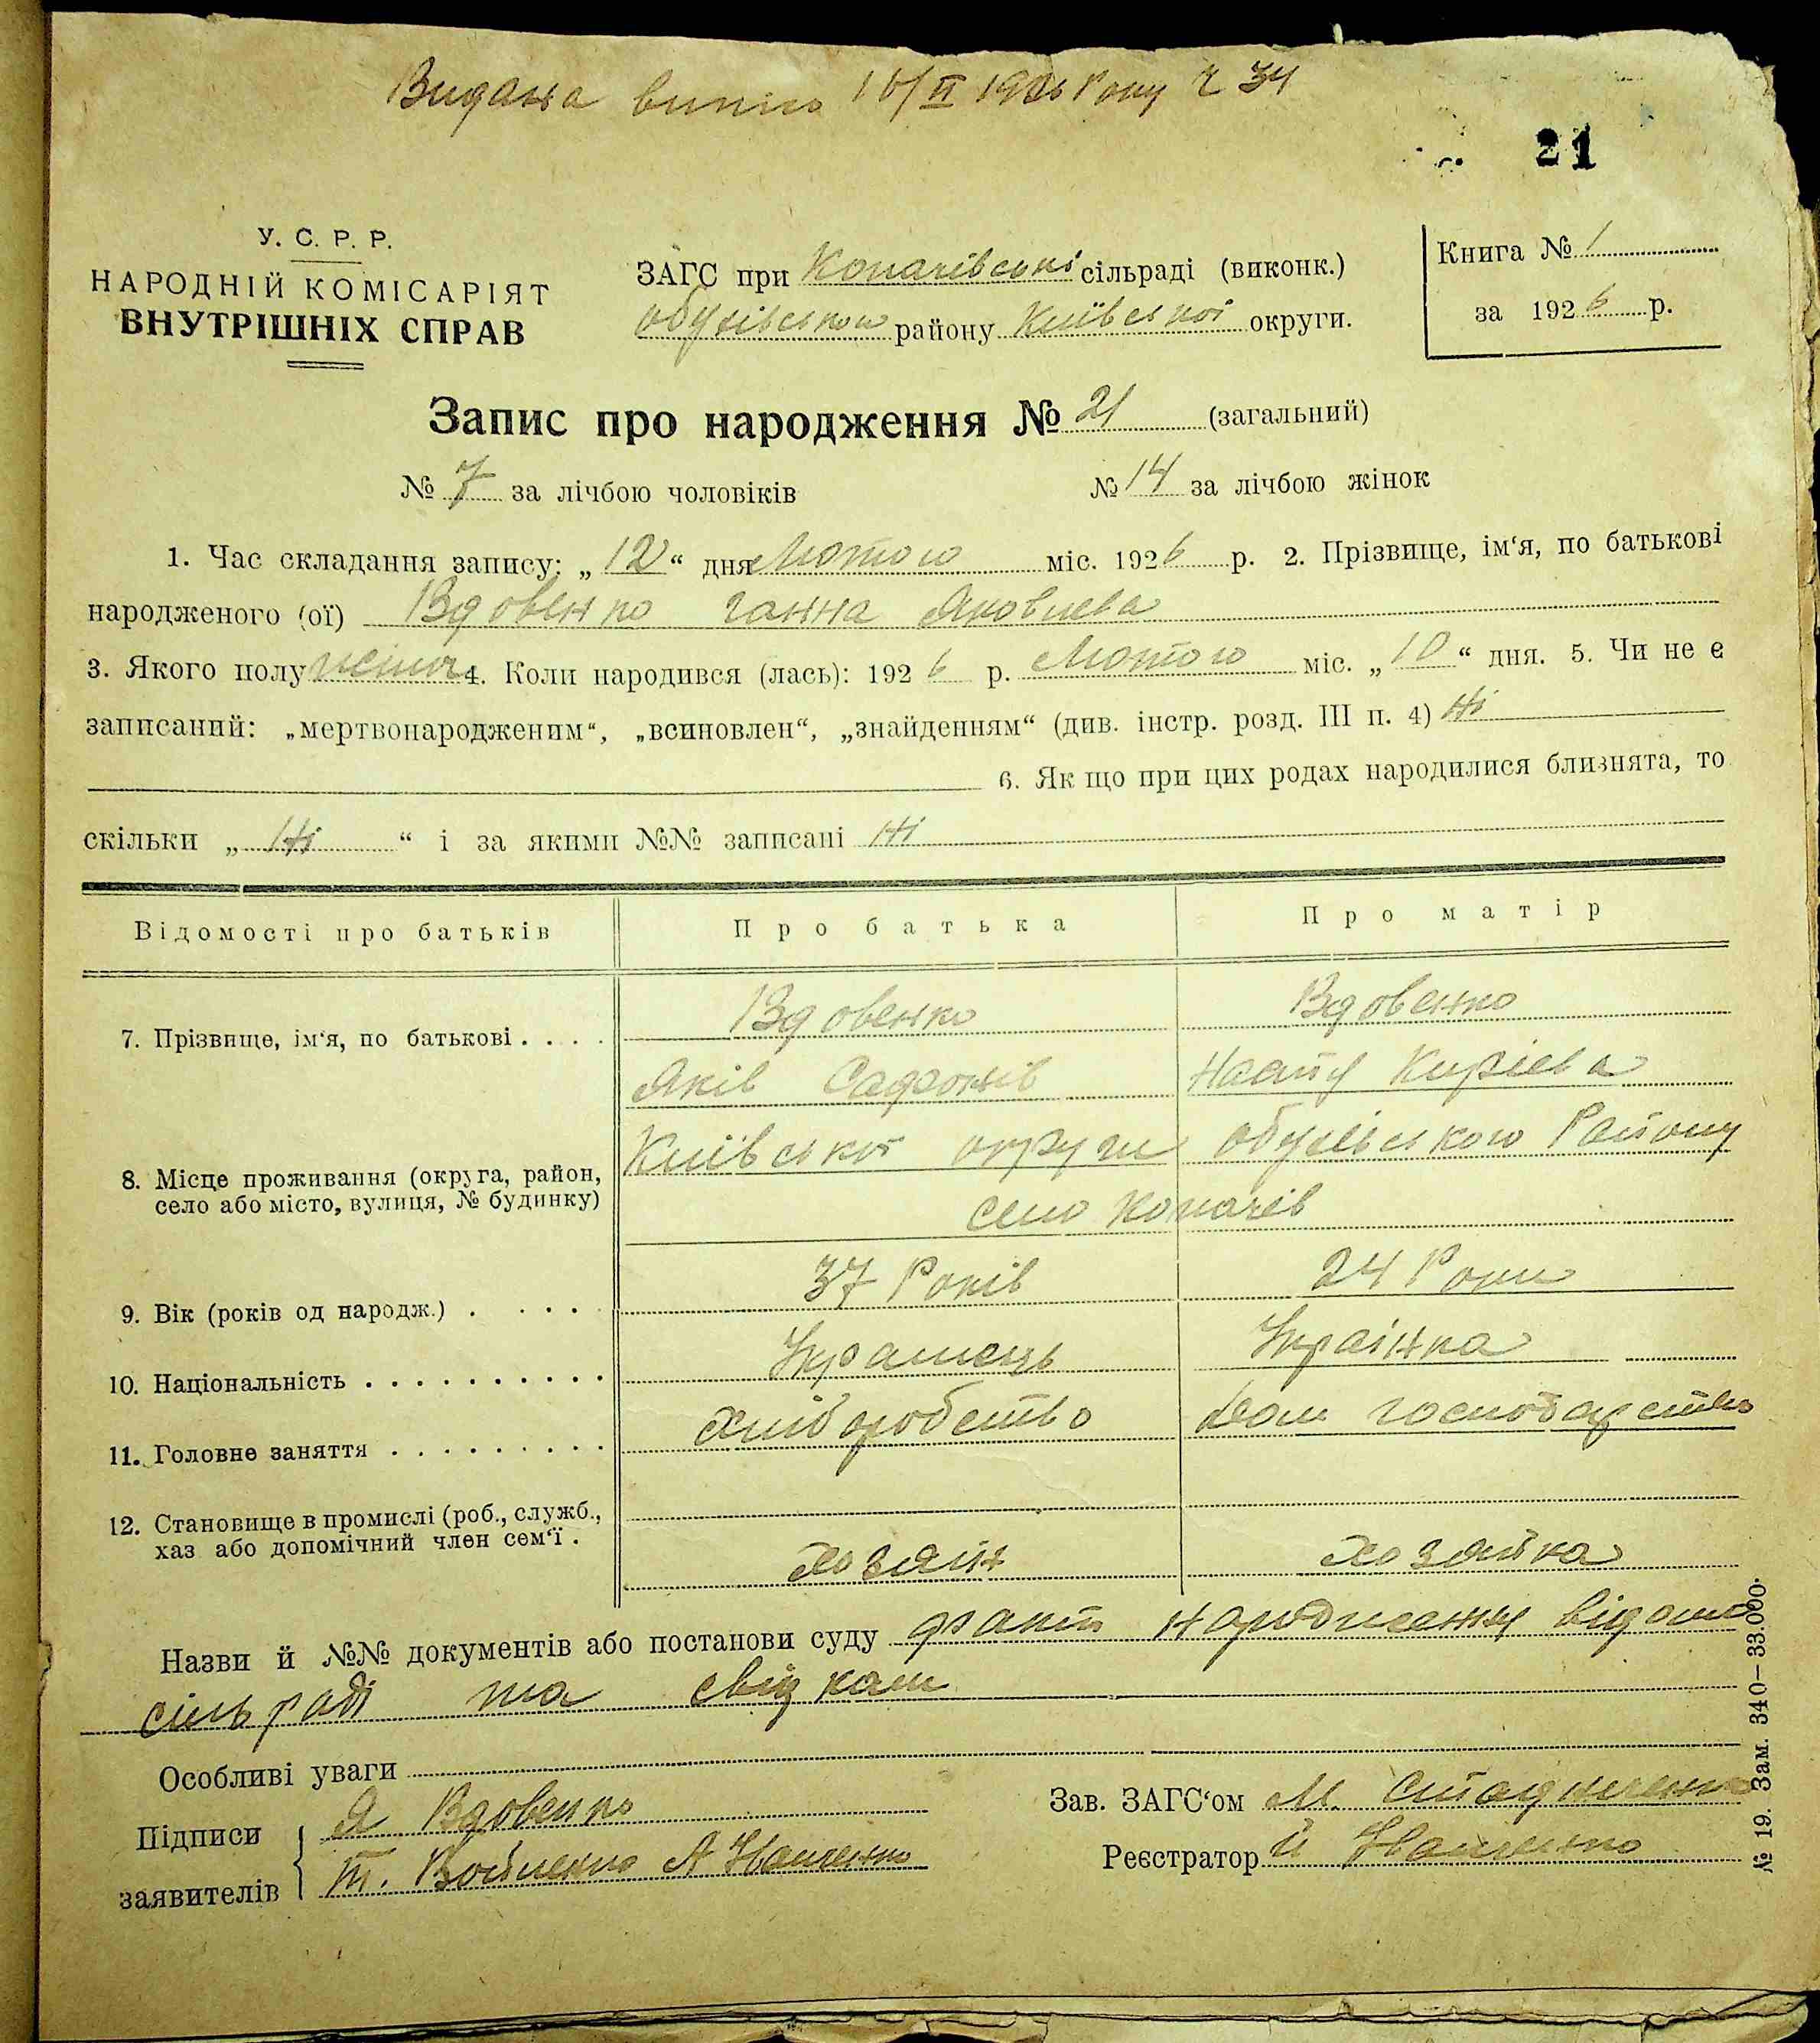 Видана випис 16/II 1926 Року Ч 34
21
У. С. Р. Р.
НАРОДНІЙ КОМІСАРІЯТ
ВНУТРІШНІХ СПРАВ
ЗАГС при Копачівські сільраді (виконк.)
Обухівського району Київської округи.
Книга № 1
за 1926 р.
Запис про народження № 21 (загальний)
№ 7 за лічбою чоловіків № 14 за лічбою жінок
1. Час складання запису: „12“ дня Лютого міс. 1926 р. 2. Прізвище, ім‘я, по батькові
народженого (ої) Вдовенко Ганна Яковлева
3. Якого полу жіноч 4. Коли народився (лась): 1926 р. Лютого міс. „10“ дня. 5. Чи не є
записаний: „мертвонародженим“, „всиновлен“, „знайденням“ (див. інстр. розд. III п. 4) Ні
6. Як що при цих родах народилися близнята, то
скільки „Ні“ і за якими №№ записані Ні
Відомості про батьків Про батька Про матір
7. Прізвище, ім‘я, по батькові . . . . Вдовенко Вдовенко
Яків Сафонів Кирієва
8. Місце проживання (округа, район, Київської округи Обухівського Району
село або місто, вулиця, № будинку) село Копачів
9. Вік (років од народж.) . . . . 37 Років 24 Роки
10. Національність . . . . . . . . . . Українець Українка
11. Головне заняття . . . . . . . . . Хліборобство Дом господарство
12. Становище в промислі (роб., служб.,
хаз або допомічний член сем‘ї . хозяїн хозяйка
Назви й №№ документів або постанови суду факт народження відомо
сільраді та свідкам
Особливі уваги
Підписи Я Вдовенко
заявителів Т. А
Зав. ЗАГС‘ом М.
Реєстратор Й
№ 19. Зам. 340–33.000.